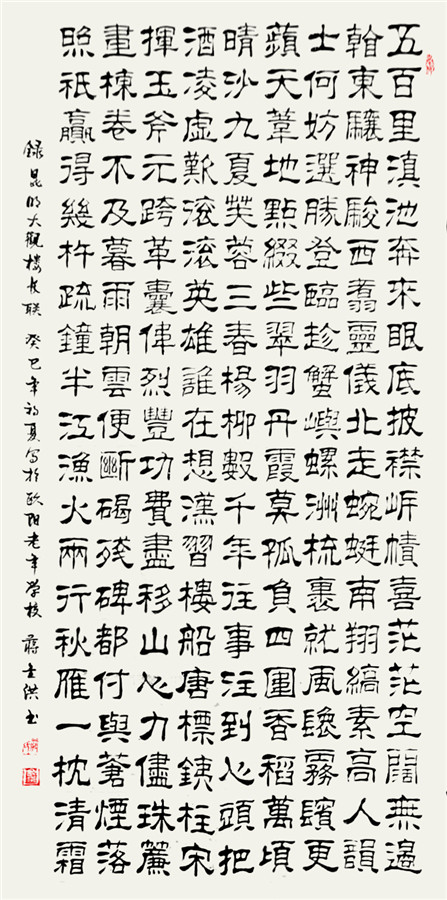 五百里滇池奔來眼底披襟岸幘喜茫茫空闊無邊
看東驤神駿西翥靈儀北走蜿蜒南翔縞素高人韻
士何妨選勝登臨趁蟹嶼螺洲梳裹就風鬟霧鬢更
蘋天葦地點綴些翠羽丹霞莫孤負四圍香稻萬頃
晴沙九夏芙蓉三春楊柳數千年往事注到心頭把
酒凌虛歎滾滾英雄誰在想漢習樓船唐標銕柱宋
揮玉斧元跨革囊偉烈豐功費盡移山心力儘珠簾
畫棟卷不及暮雨朝雲便斷碣殘碑都付與蒼煙落
照祇贏得幾杵疏鐘半江漁火兩行秋雁一枕清霜
錄昆明大觀樓長联 癸巳年初夏写於欧阳老年學校 蔣洪书